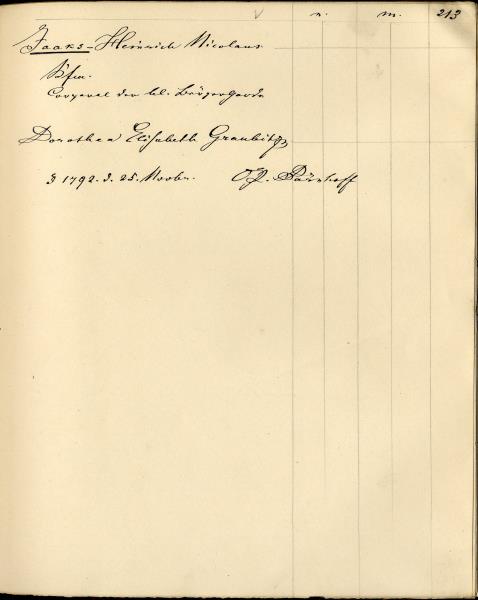 v. m. 213
Jaaks - Heinrich Nicolaus
Kfm.
Corporal der bl. Bürgergarde
Dorothea Elisabeth Graubitz
1792. d. 25. Novbr.